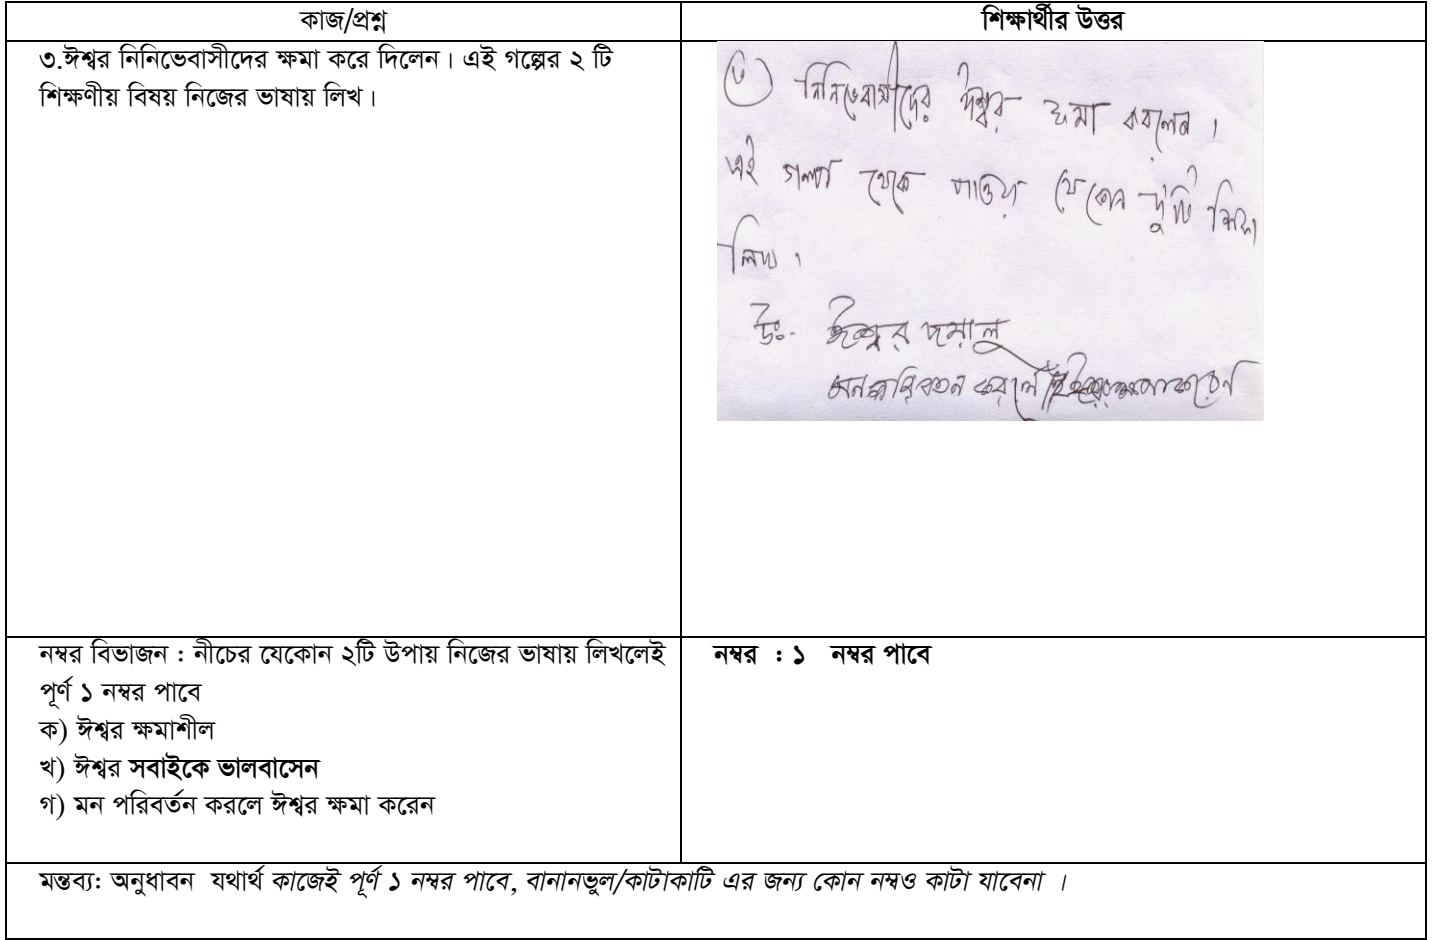 কাজ/প্রশ্ন
শিক্ষার্থীর উত্তর
৩.ঈশ্বর নিনিভেবাসীদের ক্ষমা করে দিলেন। এই গল্পের ২ টি
শিক্ষণীয় বিষয় নিজের ভাষায় লিখ।
৩ নিনিভেবাসীদের ঈশ্বর ক্ষমা করলেন।
এই গল্প থেকে পাওয়া যে কোন দুটি শিক্ষা
লিখ।
উঃ- ঈশ্বর দয়ালু
মনপরিবতন করলে ঈশ্বর ক্ষমা করেন
নম্বর বিভাজন : নীচের যেকোন ২টি উপায় নিজের ভাষায় লিখলেই
পূর্ণ ১ নম্বর পাবে
ক) ঈশ্বর ক্ষমাশীল
খ) ঈশ্বর সবাইকে ভালবাসেন
গ) মন পরিবর্তন করলে ঈশ্বর ক্ষমা করেন
নম্বর : ১ নম্বর পাবে
মন্তব্য: অনুধাবন যথার্থ কাজেই পূর্ণ ১ নম্বর পাবে, বানানভুল/কাটাকাটি এর জন্য কোন নম্বও কাটা যাবেনা ।